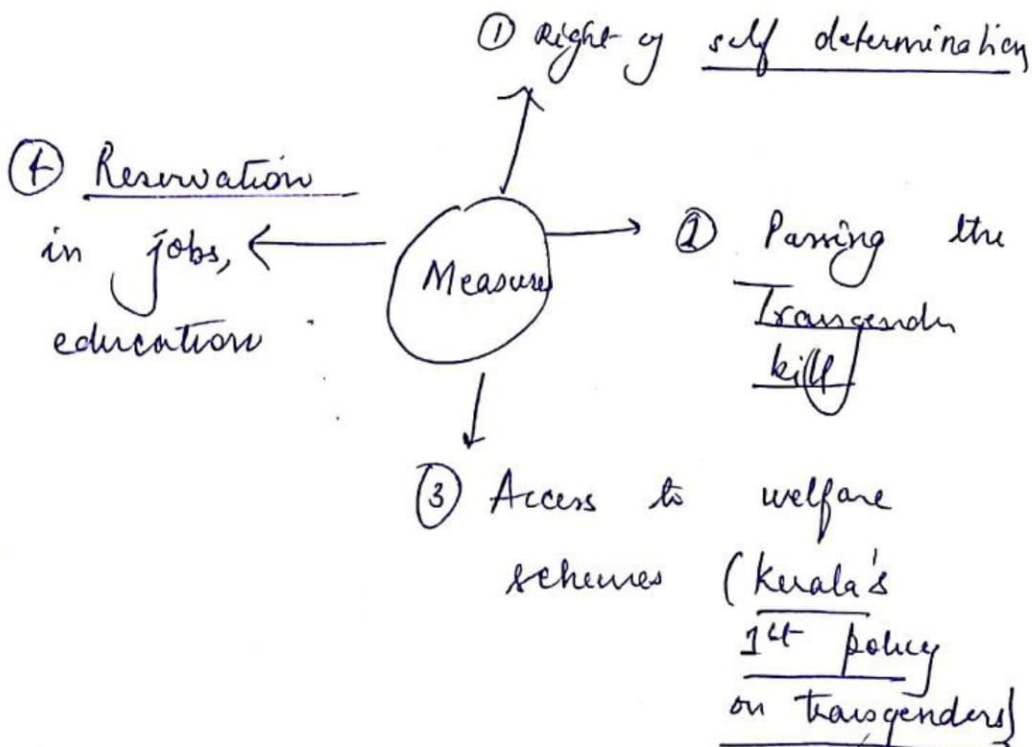 ① Right of self determination
④ Reservation
in jobs,
education
Measures
② Passing the
Transgender
bill
③ Access to welfare
schemes (Kerala's
1st policy
on transgenders)